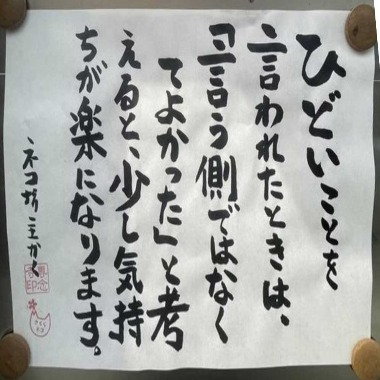 ひどいことを
言われたときは、
「言う側ではなく
てよかった」と考
えると、少し気持
ちが楽になります。
ネコ坊主かく